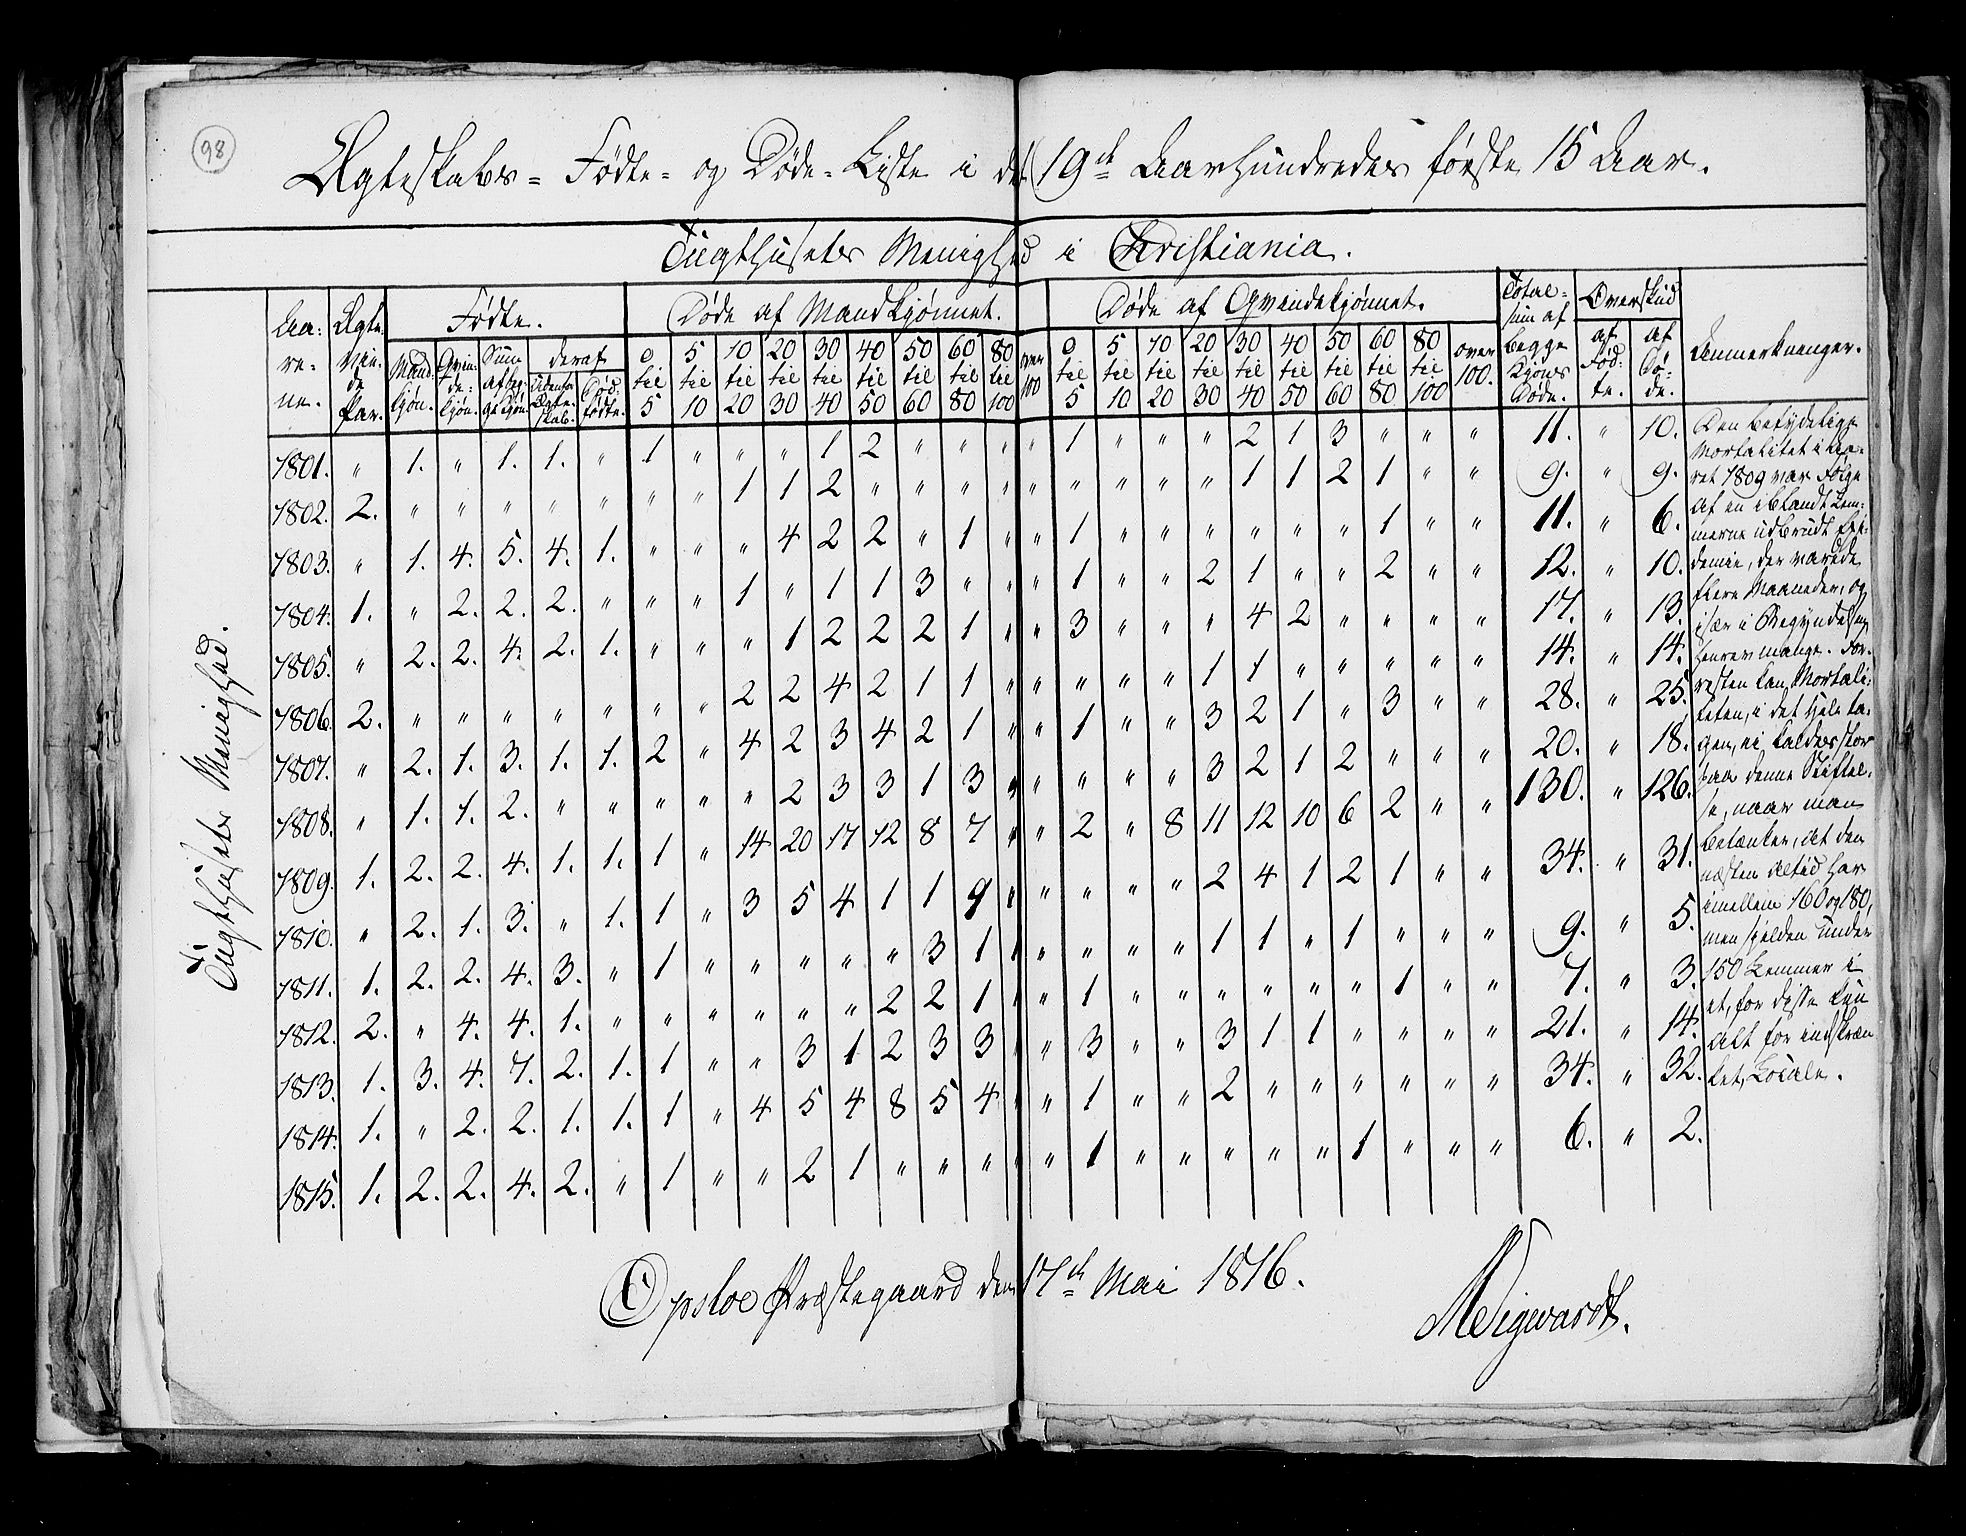 98
Ægteskabs- Fødte- og Døde-Liste i det 19de Aarhundredes første 15 Aar.
Tugthusets Menighed i Christiania.
Tugthusets Menighed.
Aa-re-ne. | Ægte Vie-de Par. | Fødte. | Døde af Mandkjønnet. | Døde af Qvindekjønnet. | Total-sum af begge Kjøns Døde. | Overskud | Anmerkninger.
Mand-kjøn. | Qvin-de-kjøn. | Sum af beg-ge Kjøn | deraf | af Fød-te. | af Dø-de.
Udenfor Ægte-skab. | Død-fødte.
0 til 5 | 5 til 10 | 10 til 20 | 20 til 30 | 30 til 40 | 40 til 50 | 50 til 60 | 60 til 80 | 80 til 100 | over 100 | 0 til 5 | 5 til 10 | 10 til 20 | 20 til 30 | 30 til 40 | 40 til 50 | 50 til 60 | 60 til 80 | 80 til 100 | over 100.
1801. | " | 1. | " | 1. | 1. | " | 1 | " | " | " | 1 | 2 | " | " | " | " | 1 | " | " | " | 2 | 1 | 3 | " | " | " | 11. | " | 10.
1802. | 2. | " | " | " | " | " | " | " | 1 | 1 | 2 | " | " | " | " | " | " | " | " | " | 1 | 1 | 2 | 1 | " | " | 9. | " | 9.
1803. | " | 1. | 4. | 5. | 4. | 1. | " | " | " | 4 | 2 | 2 | " | 1 | " | " | 1 | " | " | " | " | " | " | 1 | " | " | 11. | " | 6.
1804. | 1. | " | 2. | 2. | 2. | " | " | " | 1 | " | 1 | 1 | 3 | " | " | " | 1 | " | " | 2 | 1 | " | " | 2 | " | " | 12. | " | 10.
1805. | " | 2. | 2. | 4. | 2. | 1. | " | " | " | 1 | 2 | 2 | 2 | 1 | " | " | 3 | " | " | " | 4 | 2 | " | " | " | " | 17. | " | 13.
1806. | 2. | " | " | " | " | " | " | " | 2 | 2 | 4 | 2 | 1 | 1 | " | " | " | " | " | 1 | 1 | " | " | " | " | " | 14. | " | 14.
1807. | " | 2. | 1. | 3. | 1. | 1. | 2 | " | 4 | 2 | 3 | 4 | 2 | 1 | " | " | 1 | " | " | 3 | 2 | 1 | " | 3 | " | " | 28. | " | 25.
1808. | " | 1. | 1. | 2. | " | " | " | " | " | 2 | 3 | 3 | 1 | 3 | " | " | " | " | " | 3 | 2 | 1 | 2 | " | " | " | 20. | " | 18.
1809. | 1. | 2. | 2. | 4. | 1. | 1. | 1 | " | 14 | 20 | 17 | 12 | 8 | 7 | " | " | 2 | " | 8 | 11 | 12 | 10 | 6 | 2 | " | " | 130. | " | 126.
1810. | " | 2. | 1. | 3. | " | 1. | 1 | " | 3 | 5 | 4 | 1 | 1 | 9 | " | " | " | " | " | 2 | 4 | 1 | 2 | 1 | " | " | 34. | " | 31.
1811. | 1. | 2. | 2. | 4. | 3. | " | 1 | " | " | " | " | " | 3 | 1 | " | " | " | " | " | 1 | 1 | " | 1 | " | " | " | 9. | " | 5.
1812. | 2. | " | 4. | 4. | 1. | " | " | " | " | " | " | 2 | 2 | 1 | " | " | 1 | " | " | " | " | " | " | 1 | " | " | 7. | " | 3.
1813. | 1. | 3. | 4. | 7. | 2. | 1. | 1 | " | " | 3 | 1 | 2 | 3 | 3 | " | " | 3 | " | " | 3 | 1 | 1 | " | " | " | " | 21. | " | 14.
1814. | 1. | " | 2. | 2. | 1. | 1. | 1 | " | 4 | 5 | 4 | 8 | 5 | 4 | " | " | 1 | " | " | 2 | " | " | " | " | " | " | 34. | " | 32.
1815. | 1. | 2. | 2. | 4. | 2. | " | 1 | " | " | 2 | 1 | " | " | " | " | " | 1 | " | " | " | " | " | 1 | " | " | " | 6. | " | 2.
Den betydelige
Mortalitet i Aa-
ret 1809 var Følge
af en iblandt Lem-
merne udbrudt Epi-
demie, der varede
flere Maaneder, og
især i Begyndelsen
henrev mange. For-
resten kan Mortali-
teten, i det hele ta-
gen, ei kaldes stor
paa denne Stiftel-
se, naar man
betænker, at den
næsten altid har
imellem 160 og 180,
men sjelden under
150 Lemmer i
et, for disse kun
alt for indskræn-
ket, Locale.
Opsloe Præstegaard den 17de Mai 1816.
Sigwardt.